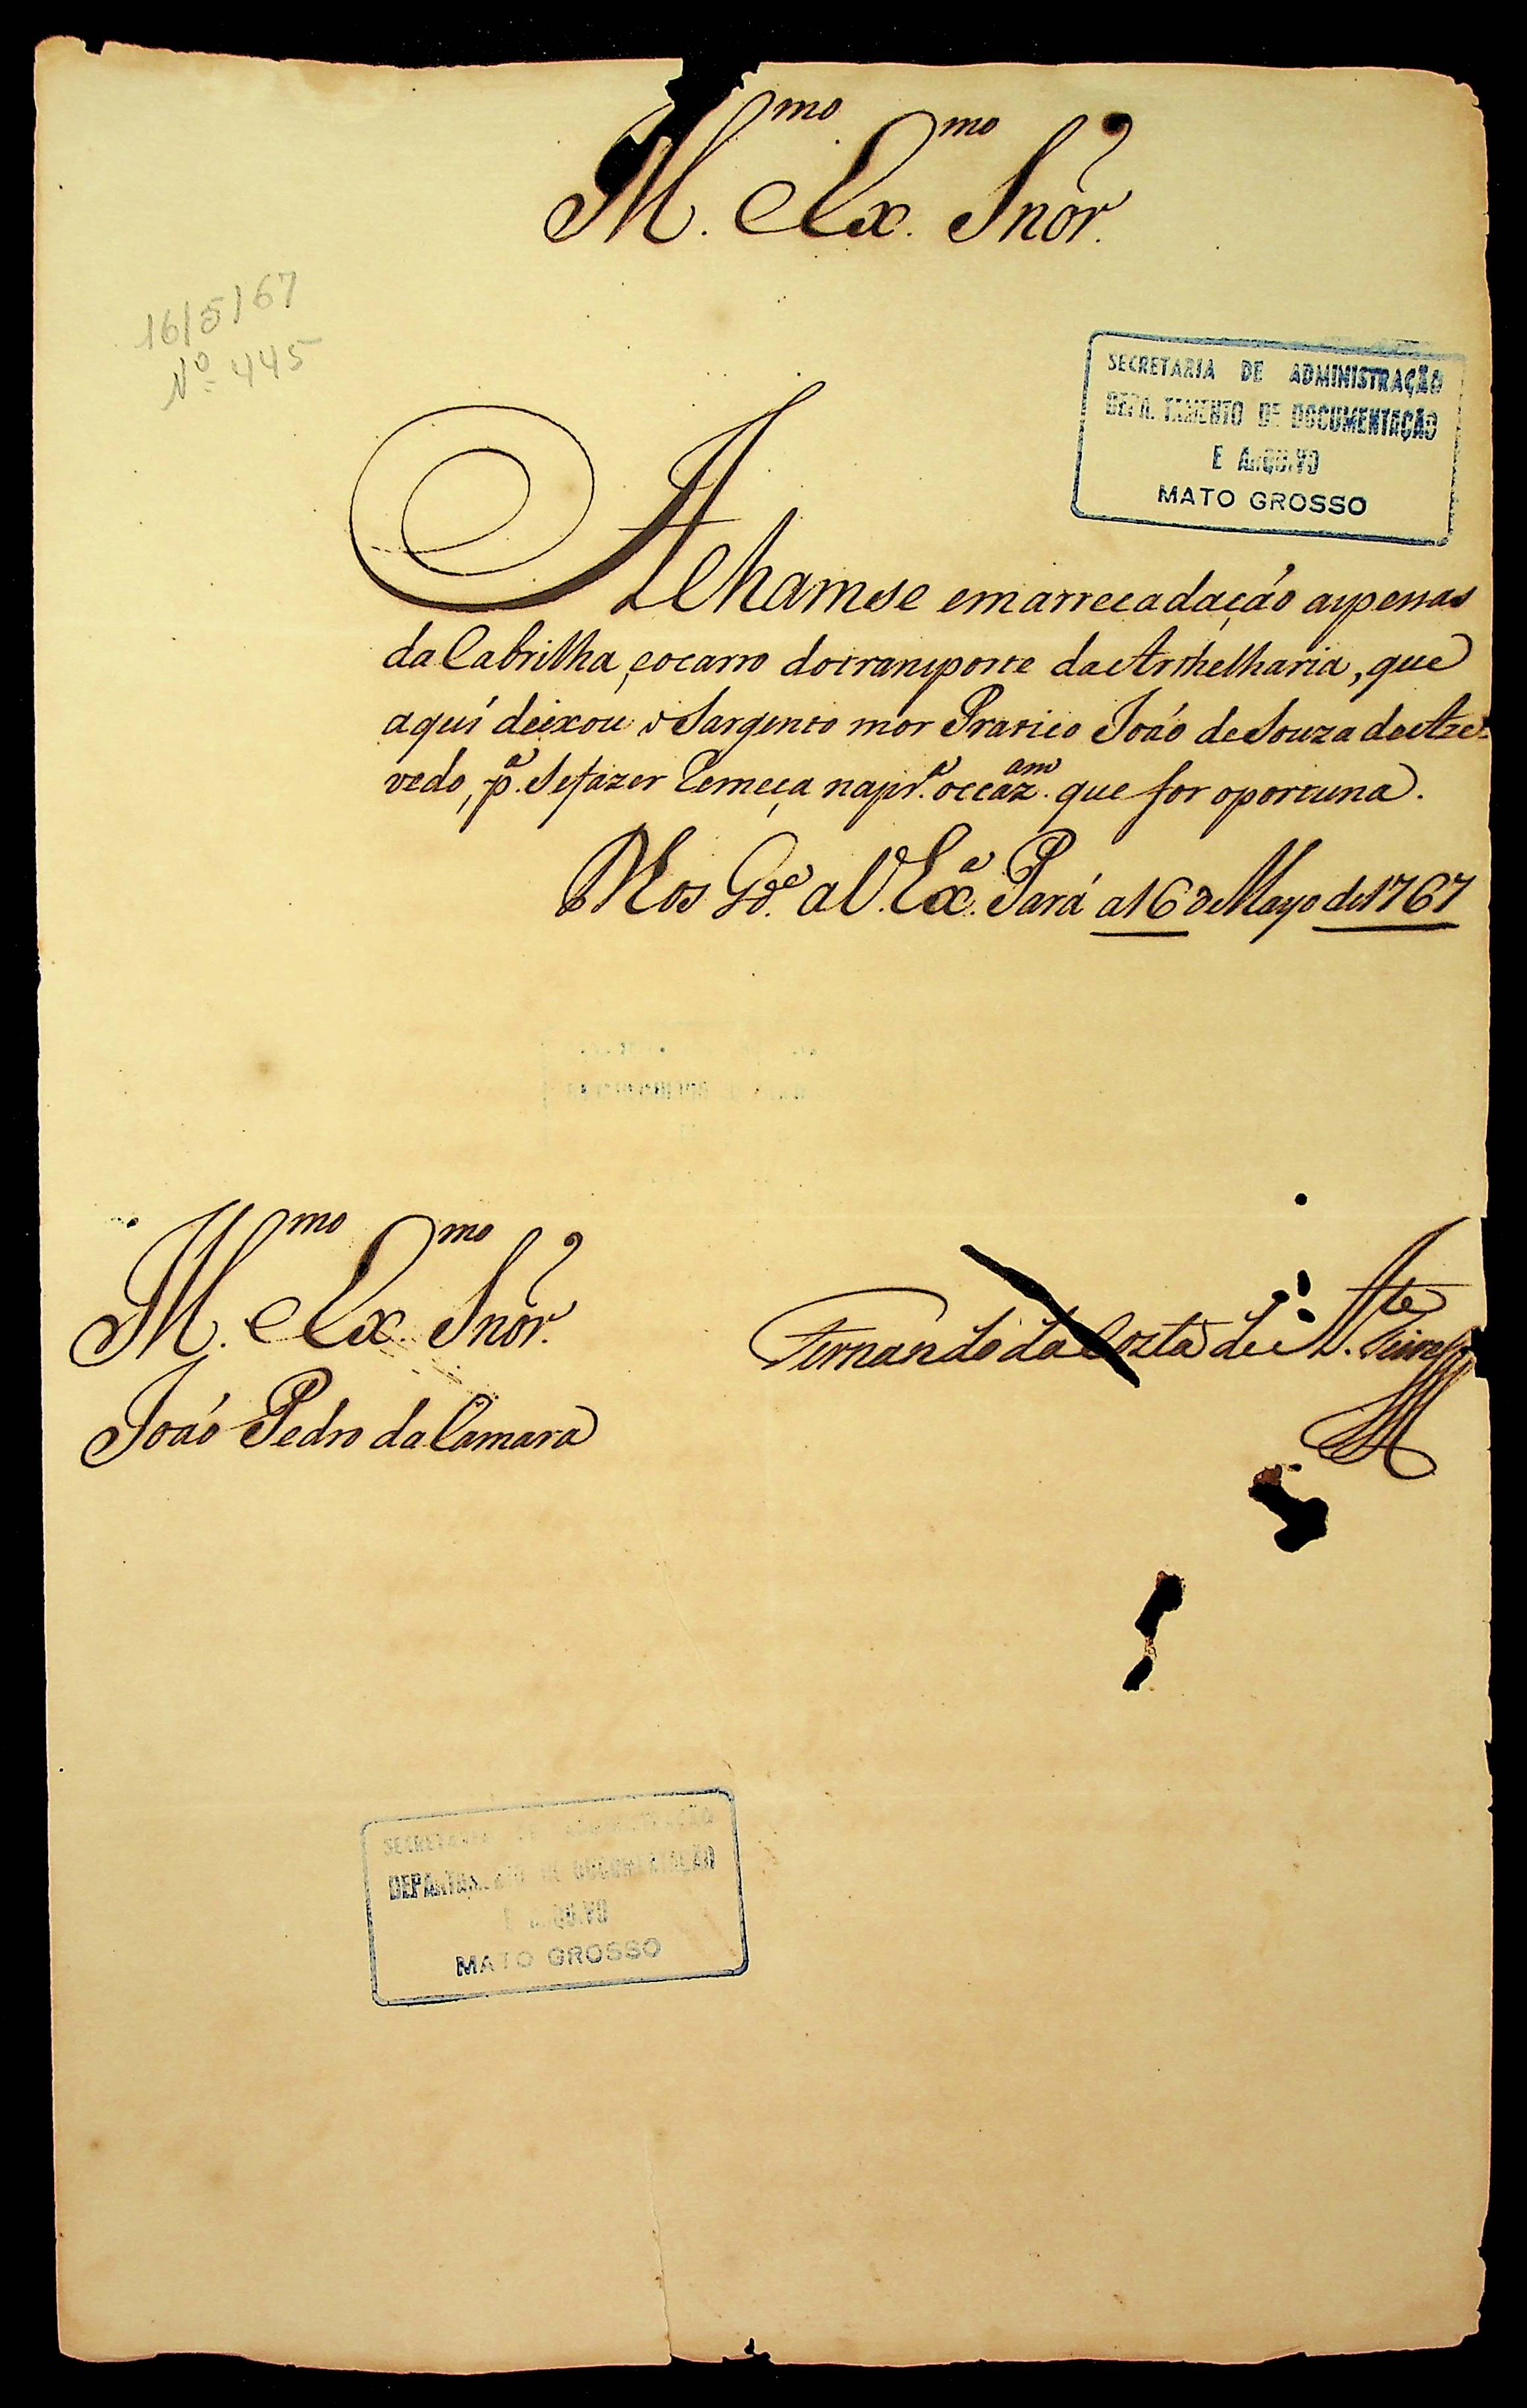 Ill.mo Ex.mo Snõr.
16/5/67
Nº 445
SECRETARIA DE ADMINISTRAÇÃO
DEPARTAMENTO DE DOCUMENTAÇÃO
E ARQUIVO
MATO GROSSO
Achamse emarrecadação aspessas
da Cabrilha, eocarro dotransporte daArthelharia, que
aquí deixou o Sargento mór Pratico João deSouza deAze-
vedo, p.ª Sefazer Remeça napr.ª occaz.am que for oportuna.
D'Eos G.de a V. Ex.ª Pará a16 deMayo de1767
Ill.mo Ex.mo Snõr.
João Pedro daCamara
Fernando da Costa de At.e Teive
SECRETARIA DE ADMINISTRAÇÃO
DEPARTAMENTO DE DOCUMENTAÇÃO
E ARQUIVO
MATO GROSSO